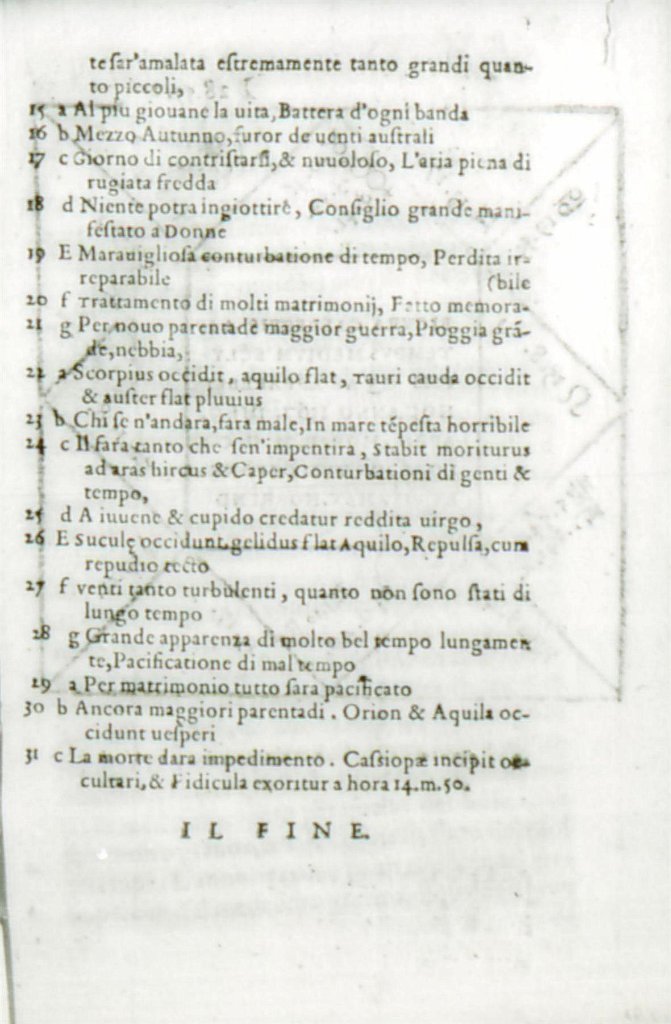 te sar'amalata estremamente tanto grandi quan-
to piccoli,
15 a Al piu giouane la uita, Battera d'ogni banda
16 b Mezzo Autunno, furor de uenti australi
17 c Giorno di contristarsi, & nuuoloso, L'aria piena di
rugiata fredda
18 d Niente potra ingiottire, Consiglio grande mani-
festato a Donne
19 E Marauigliosa conturbatione di tempo, Perdita ir-
reparabile (bile
20 f Trattamento di molti matrimonij, Fatto memora-
21 g Per nouo parentade maggior guerra, Pioggia grã-
de, nebbia,
22 a Scorpius occidit, aquilo flat, Tauri cauda occidit
& auster flat pluuius
23 b Chi se n'andara, fara male, In mare tẽpesta horribile
24 c Il fara tanto che sen'impentira, Stabit moriturus
ad aras hircus & Caper, Conturbationi di genti &
tempo,
25 d A iuuene & cupido credatur reddita uirgo,
26 E Suculę occidunt, gelidus flat Aquilo, Repulsa, cum
repudio tecto
27 f venti tanto turbulenti, quanto non sono stati di
lungo tempo
28 g Grande apparenza di molto bel tempo lungamen
te, Pacificatione di mal tempo
29 a Per matrimonio tutto sara pacificato
30 b Ancora maggiori parentadi. Orion & Aquila oc-
cidunt uesperi
31 c La morte dara impedimento. Cassiopæ incipit oc-
cultari, & Fidicula exoritur a hora 14.m.50.
IL FINE.